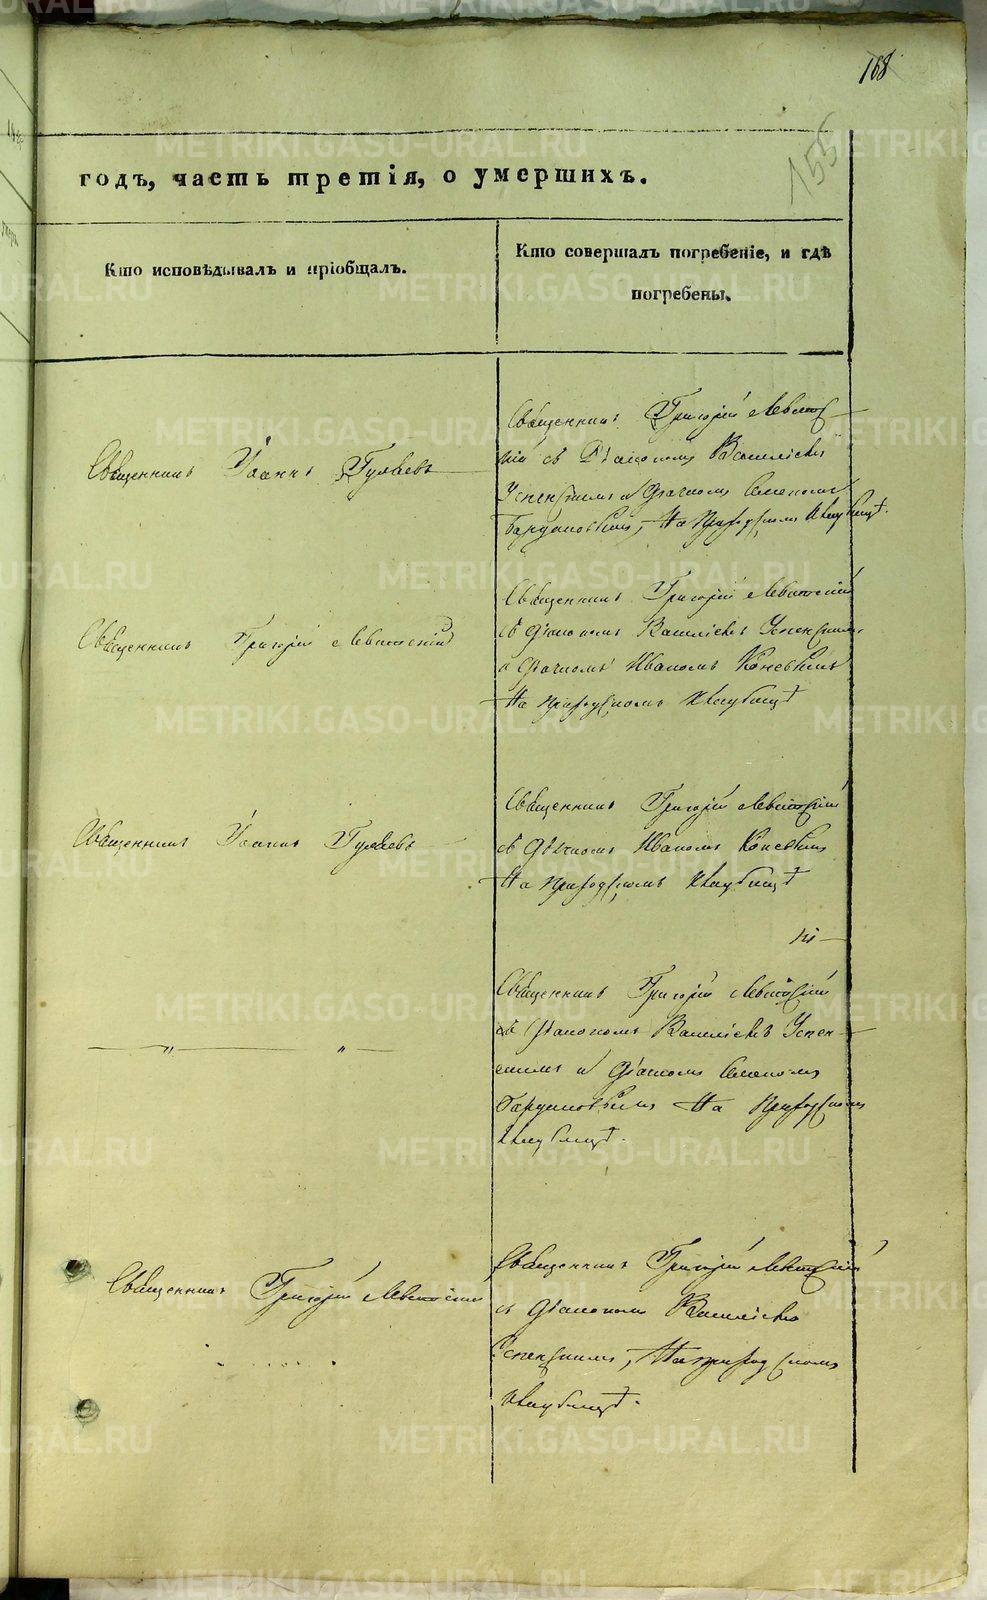 168
155
годъ, часть третія, о умершихъ.
Кто исповѣдывалъ и пріобщалъ.
Кто совершалъ погребеніе, и гдѣ
погребены.
Священникъ Іоаннъ Гуляевъ
Священникъ Григорій Левитс
кій съ Діакономъ Василіемъ
Успенскимъ и Дьячкомъ Семеномъ
На Приходскомъ Кладбищѣ.
Священникъ Григорій Левитскій
Священникъ Григорій Левитскій
съ Діакономъ Василіемъ Успенскимъ
и Дьячкомъ Иваномъ Коневымъ
На Приходскомъ Кладбищѣ
Священникъ Іоаннъ Гуляевъ
Священникъ Григорій Левитскій
съ Дьячкомъ Иваномъ Коневымъ
На Приходскомъ Кладбищѣ
— „ — „ —
Священникъ Григорій Левитскій
съ Діакономъ Василіемъ Успен
скимъ и Дьячкомъ Семеномъ
На Приходскомъ
Кладбищѣ.
Священникъ Григорій Левитскій
Священникъ Григорій Левитскій
съ Діакономъ Василіемъ
Успенскимъ, На приходскомъ
Кладбищѣ.
METRIKI.GASO-URAL.RU